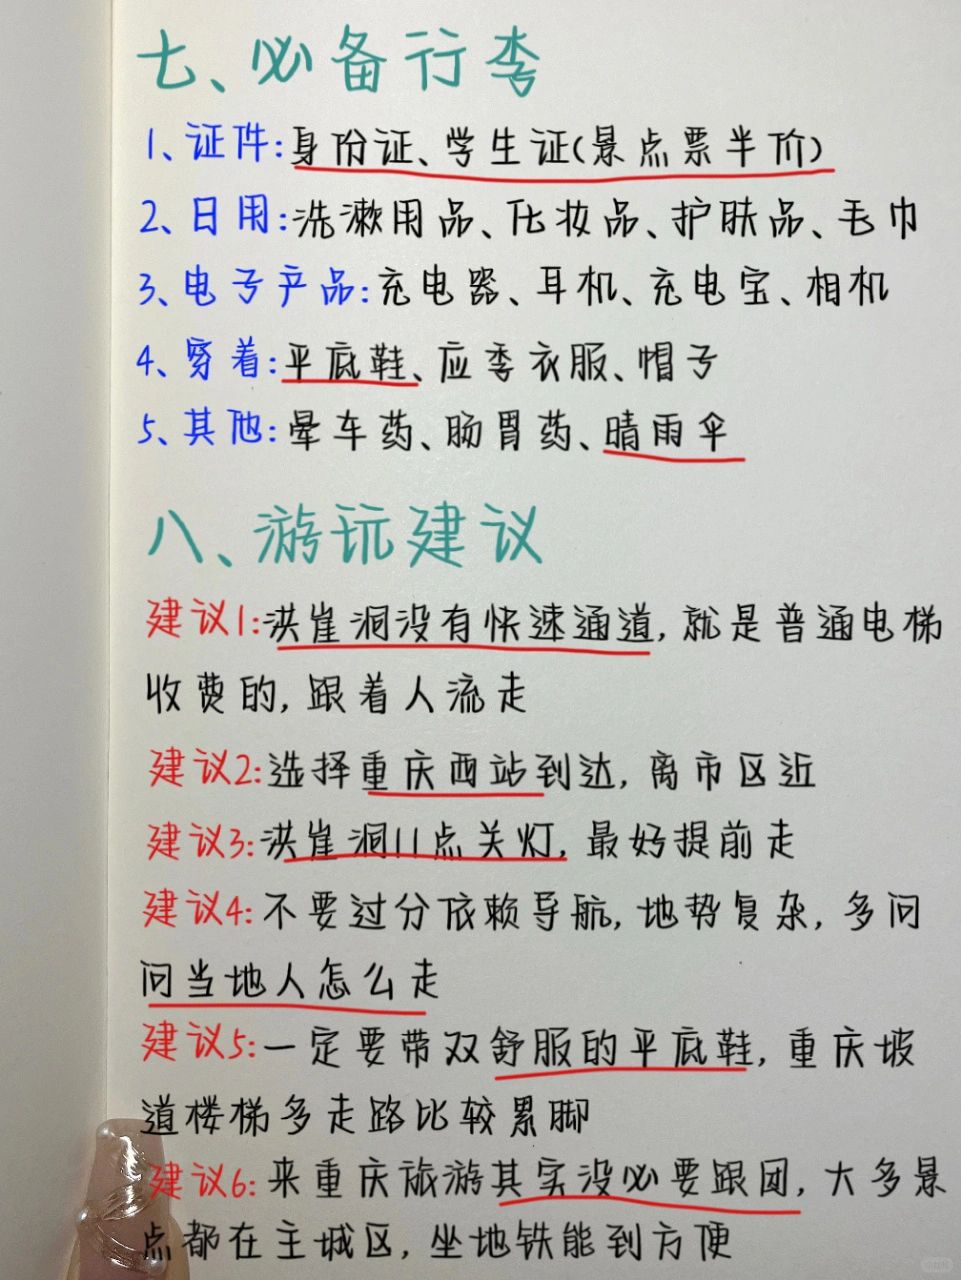 七、必备行李
1、证件:身份证、学生证(景点票半价)
2、日用:洗漱用品、化妆品、护肤品、毛巾
3、电子产品:充电器、耳机、充电宝、相机
4、穿着:平底鞋、应季衣服、帽子
5、其他:晕车药、肠胃药、晴雨伞
八、游玩建议
建议1:洪崖洞没有快速通道,就是普通电梯
收费的,跟着人流走
建议2:选择重庆西站到达,离市区近
建议3:洪崖洞11点关灯,最好提前走
建议4:不要过分依赖导航,地势复杂,多问
问当地人怎么走
建议5:一定要带双舒服的平底鞋,重庆坡
道楼梯多走路比较累脚
建议6:来重庆旅游其实没必要跟团,大多景
点都在主城区,坐地铁能到方便